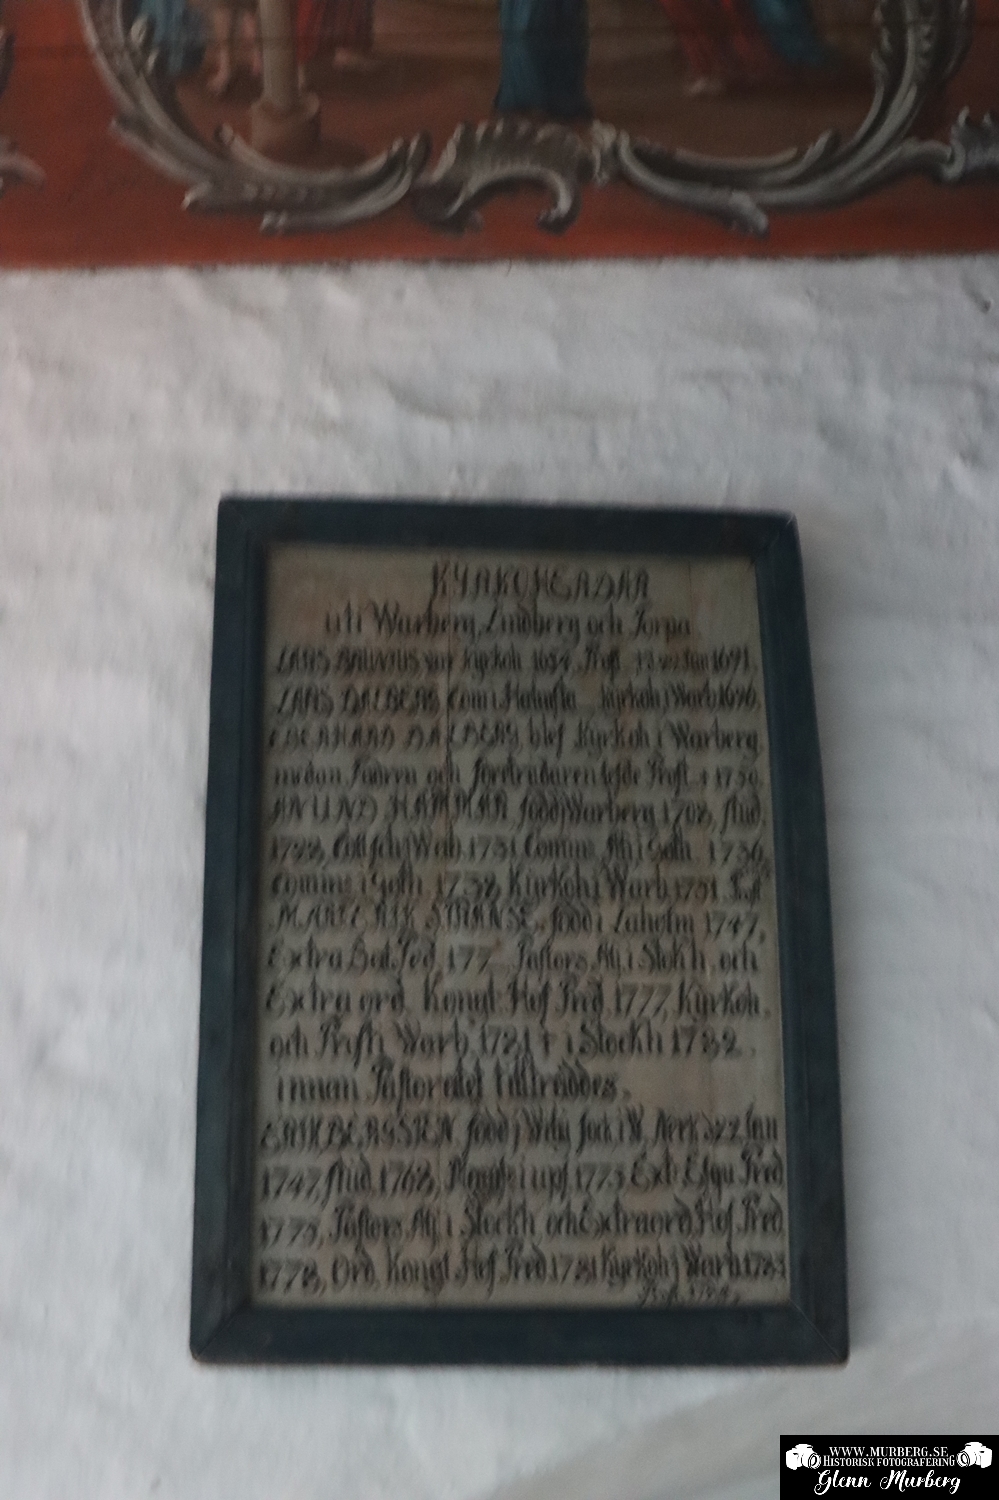 KYRKOHERDAR
uti Warberg, Lindberg och Torpa
LARS BAUNIUS var Kyrkoh. 1654. Prost. 1691.
LARS DALBERG Com i kyrkoh. i Warb. 1696.
EBERHARD DALBERG, blef Kyrkoh. i Warberg,
medan Fadren och företrädaren lefde Prost. † 1750.
ANUND HAMMAR född i Warberg 1708, stud.
1728, Coll. sch. i Warb. 1731, Comm. Ah. i Goth. 1736,
Comm. i Goth. 1738, Kyrkoh. i Warb. 1751.
MART. ERIK STRANSE. född i Laholm 1747,
Extra Bat. Pred. 177 Pastors Adj. i Stokh. och
Extra ord. Kongl. Hof Pred. 1777, Kyrkoh.
och Prost i Warb. 1781 † i Stockh 1782.
innan Pastoratet tillträddes.
ERIK BERGSTEN. född i
1747, stud. 1768, i ups. 1773 Ext. Esqu. Pred
1775, Pastors Adj. i Stockh, och Extraord. Hof Pred.
1778, Ord. Kongl. Hof Pred. 1781 Kyrkoh. i Warb. 1783
WWW.MURBERG.SE
HISTORISK FOTOGRAFERING
Glenn Murberg